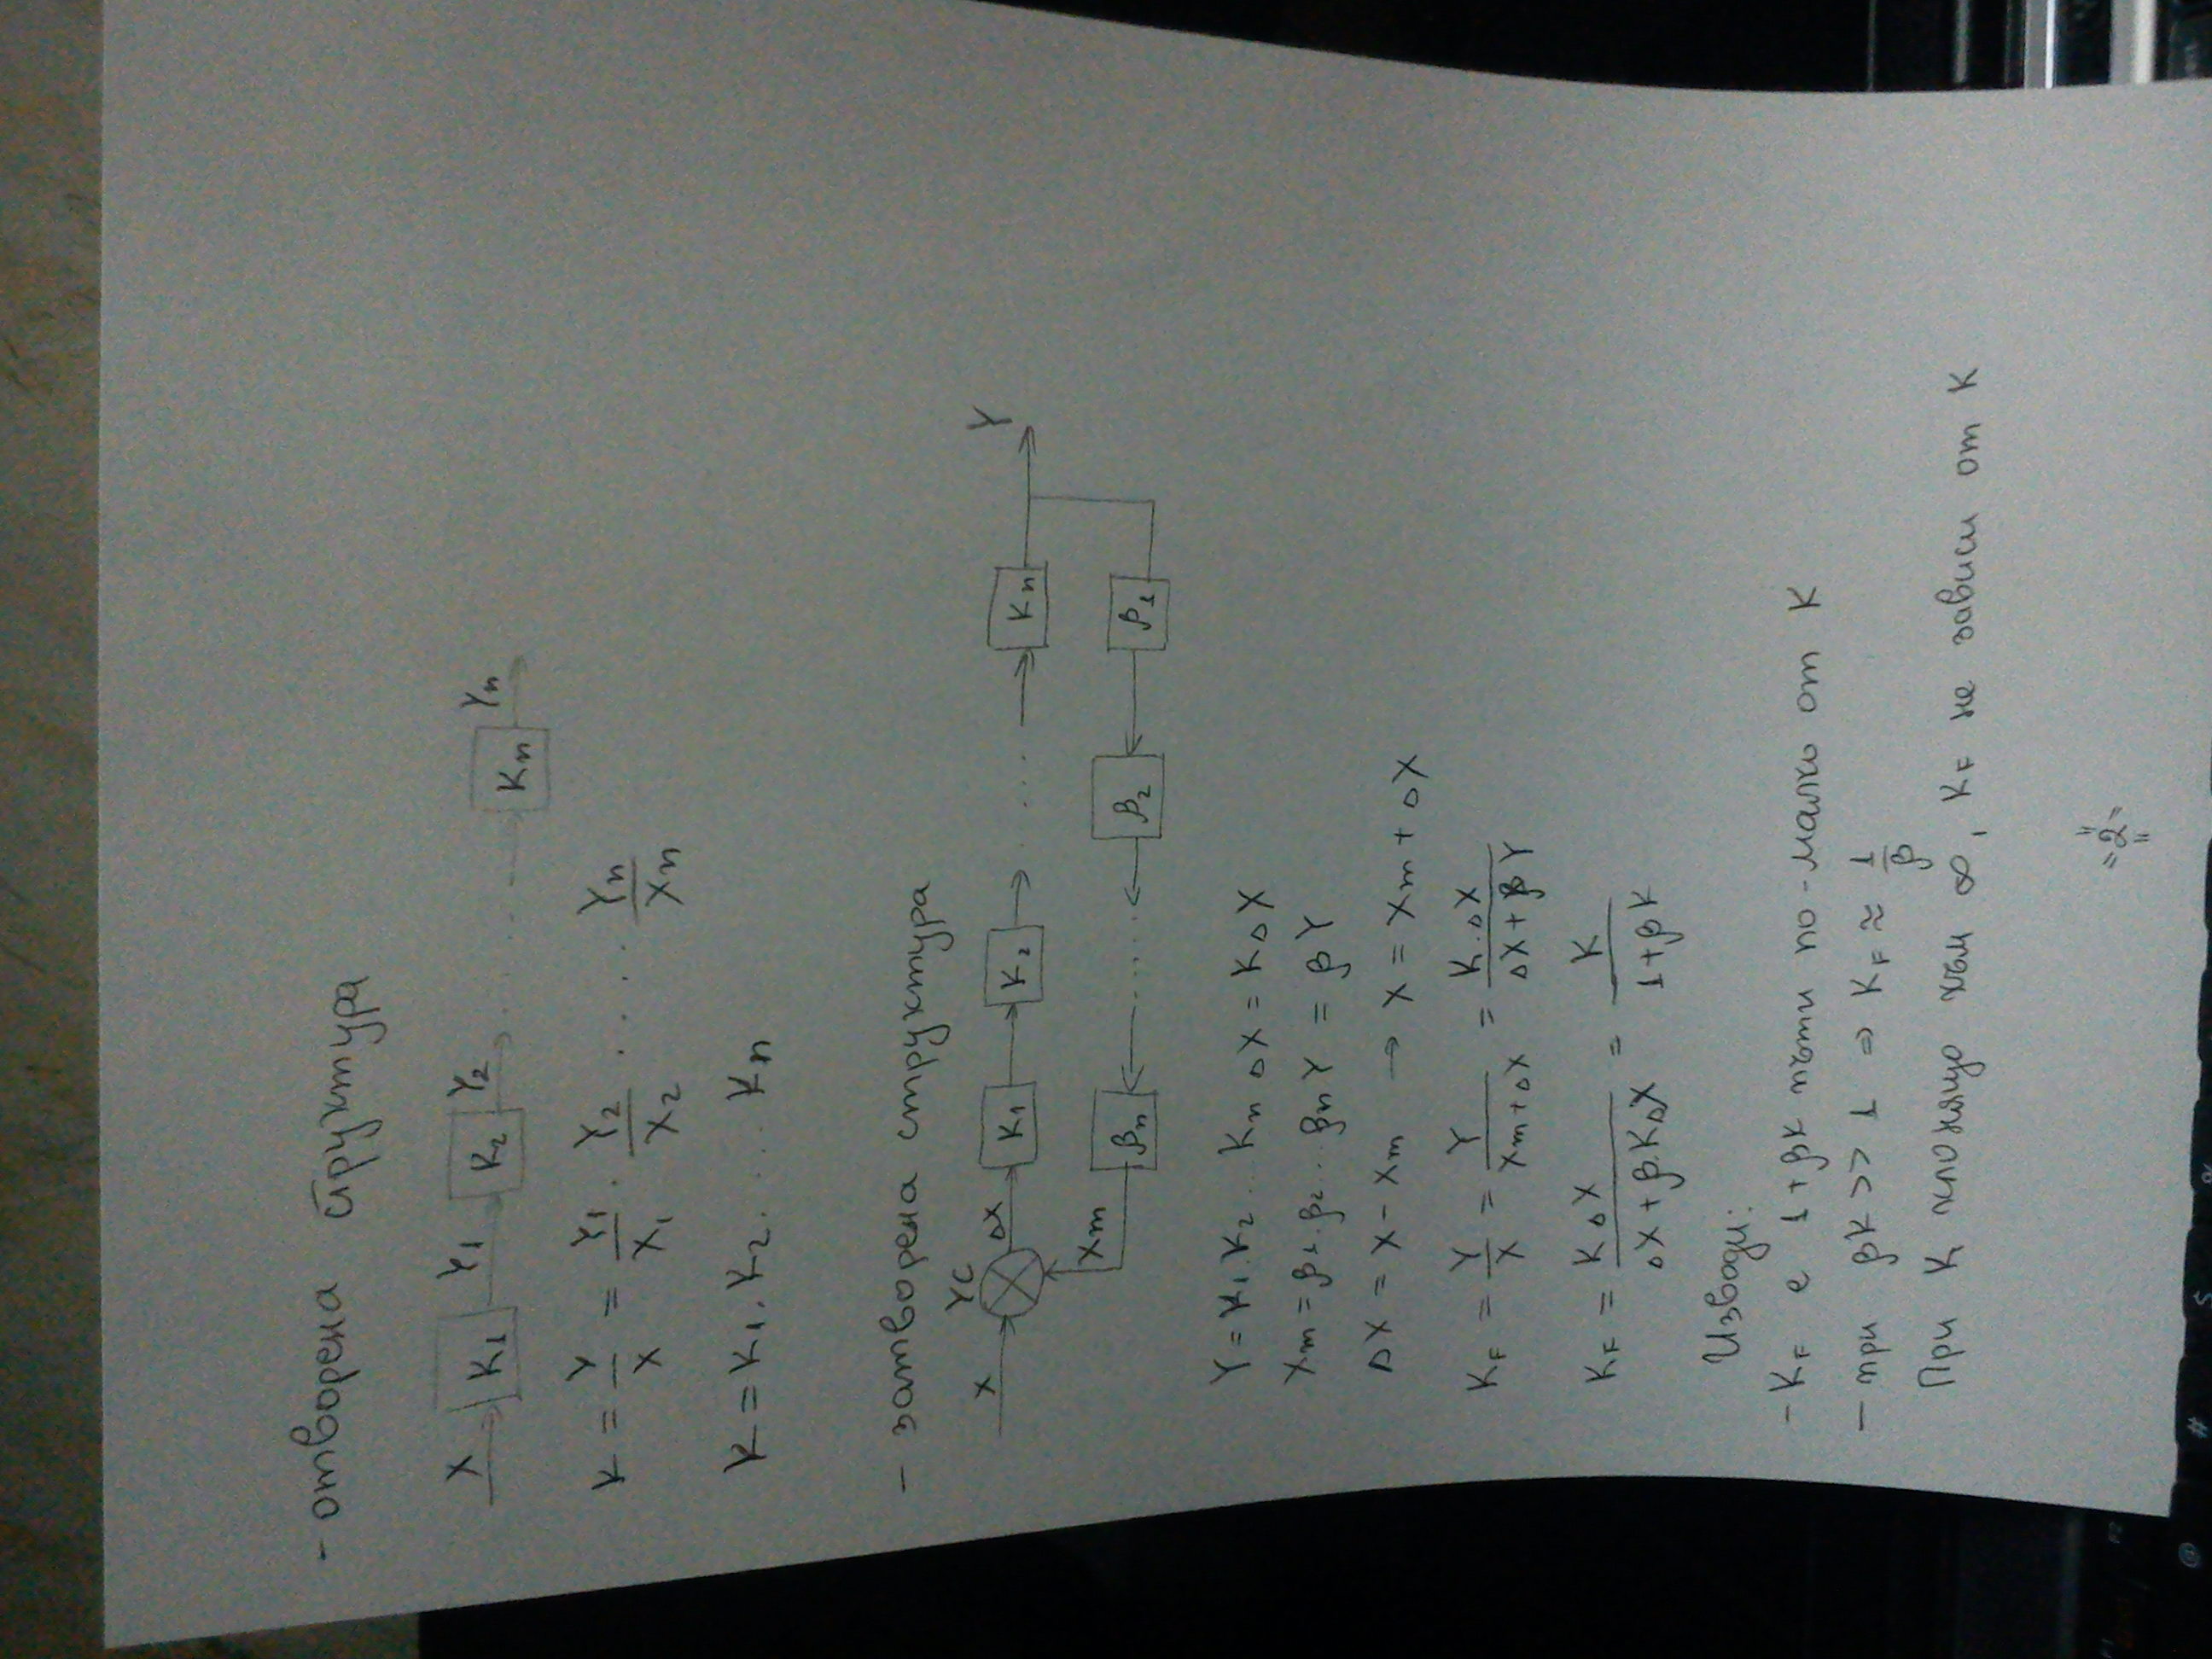 - отворена структура
X K1 Y1 K2 Y2 ... Kn Yn
K = Y/X = Y1/X1 . Y2/X2 . . . . Yn/Xn
K = K1 . K2 . . . . Kn
- затворена структура
X УС ΔX K1 K2 ... Kn Y
Xm βn .... β2 β1
Y = K1.K2 ... Kn ΔX = KΔX
Xm = β1.β2 ... βn Y = βY
ΔX = X - Xm → X = Xm + ΔX
KF = Y/X = Y/(Xm+ΔX) = K.ΔX/(ΔX+βY)
KF = KΔX/(ΔX+β.KΔX) = K/(1+βK)
Изводи:
- KF е 1+βK пъти по-малко от K
- при βK >> 1 ⇒ KF ≈ 1/β
При K клонящо към ∞, KF не зависи от K
=2=